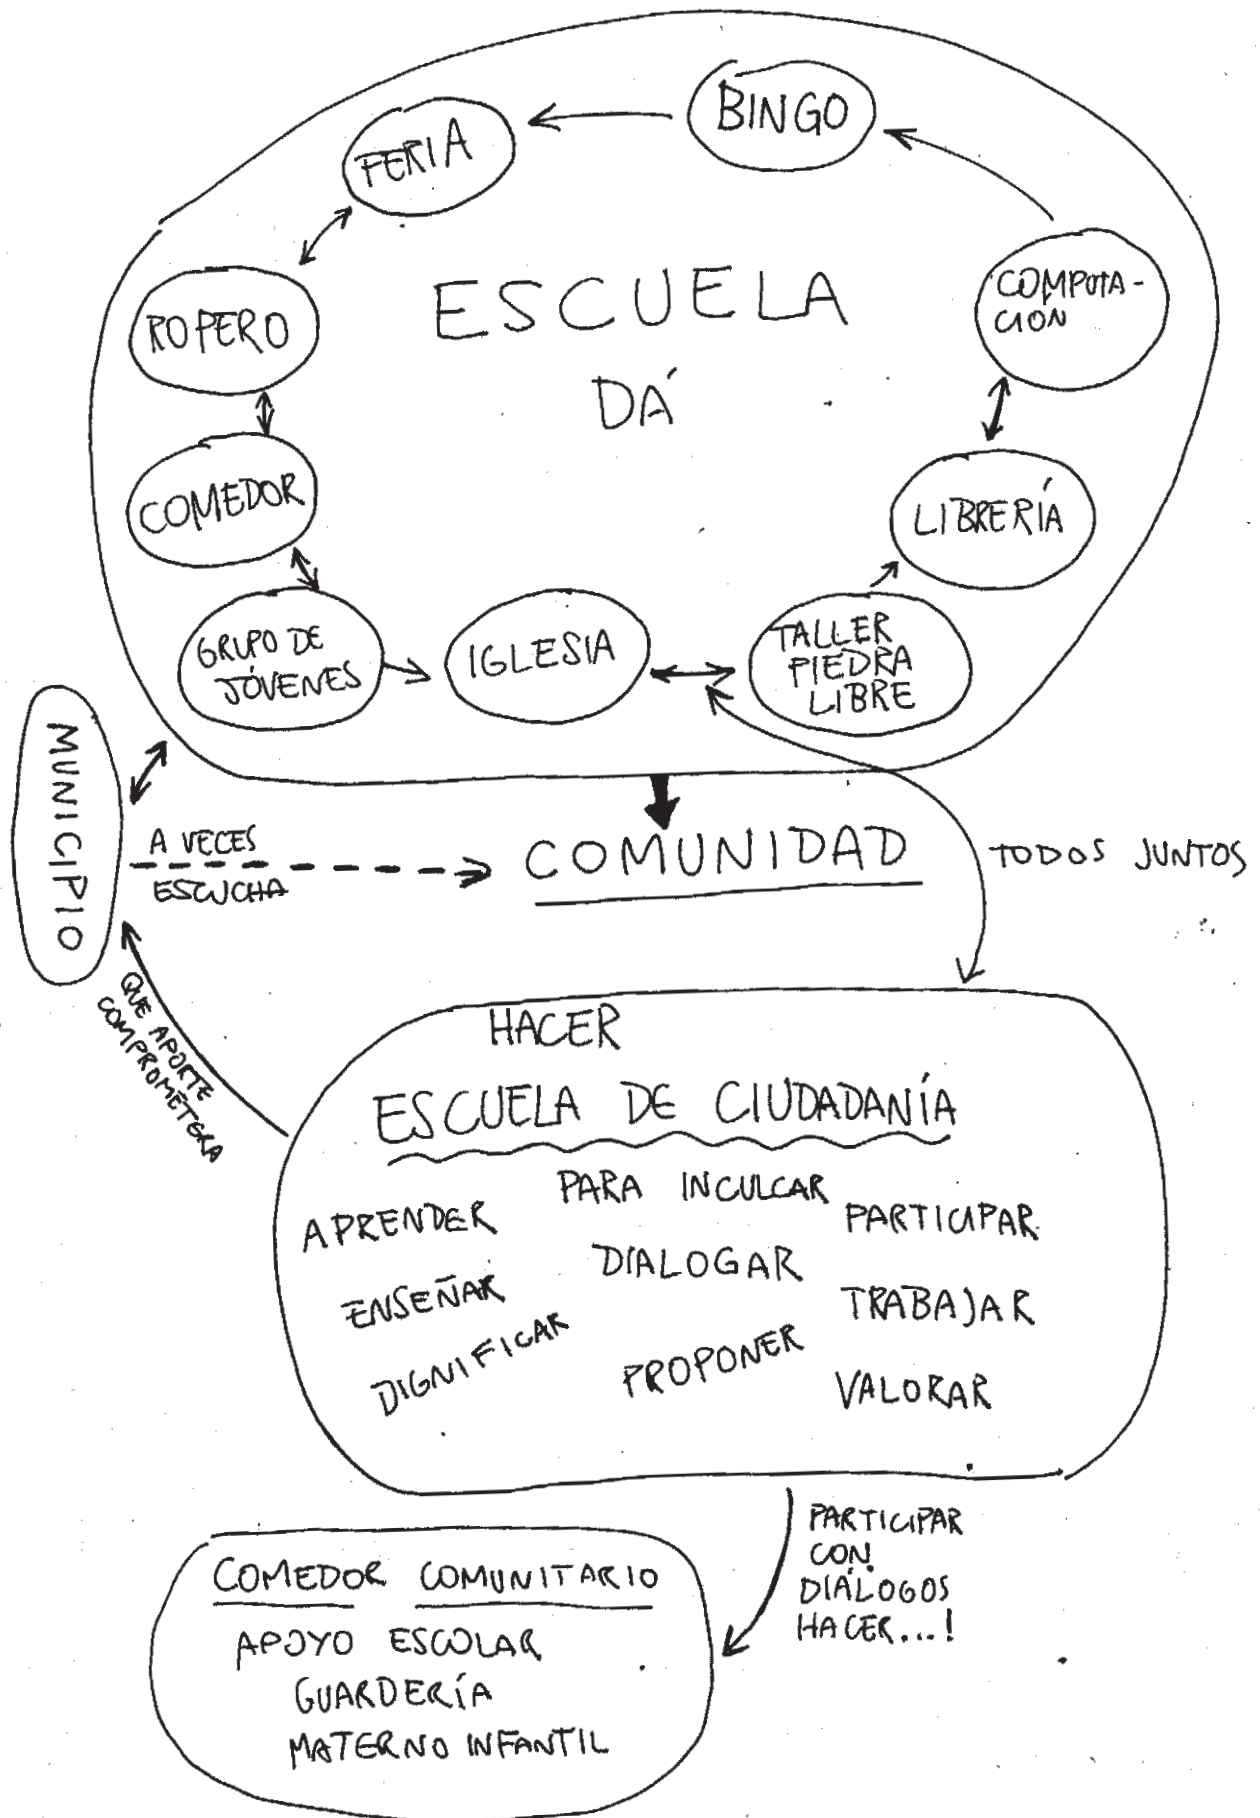 BINGO
FERIA
ESCUELA
DÁ
COMPUTA-
CION
ROPERO
COMEDOR
LIBRERÍA
GRUPO DE
JÓVENES
IGLESIA
TALLER
PIEDRA
LIBRE
MUNICIPIO
A VECES
ESCUCHA
COMUNIDAD
TODOS JUNTOS
QUE APORTE
COMPROMETERA
HACER
ESCUELA DE CIUDADANÍA
PARA INCULCAR
APRENDER
PARTICIPAR
DIALOGAR
ENSEÑAR
TRABAJAR
DIGNIFICAR
PROPONER
VALORAR
PARTICIPAR
CON
DIÁLOGOS
HACER...!
COMEDOR COMUNITARIO
APOYO ESCOLAR
GUARDERÍA
MATERNO INFANTIL